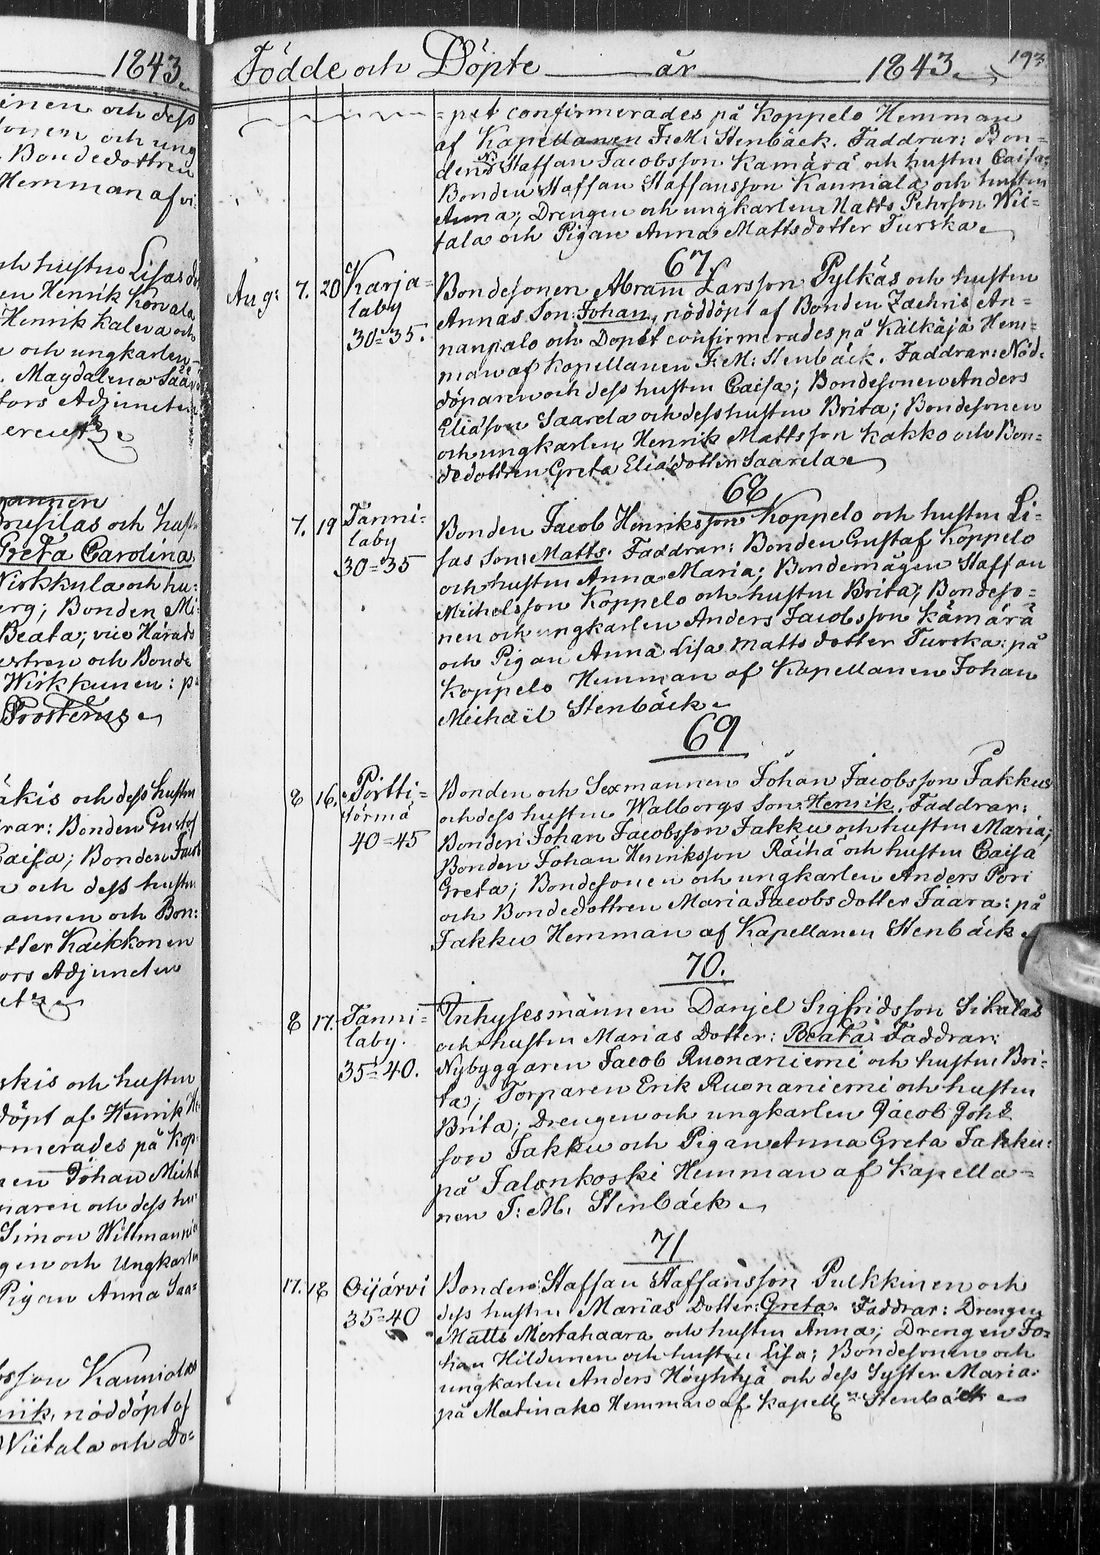 1843.
inen och dess
sonen och ung
Bondedottren
Hemman af vi:
och hustru Lisas do
en Henrik Korvala
Henrik Kaleva och
n och ungkarlen
Magdalena Saar
fors Adjuncten
Drusilas och hust
Greta Carolina
Wirkkula och hu:
erg; Bonden Mi:
Beata; vice Härads
ustren och Bonde
Wirkkunen: på
Prosterus
äkis och dess hustru
rar: Bonden Gustaf
Caisa; Bonden Jacob
n och dess hustru
annen och Bon:
otter Kaikkonen
fors Adjuncten
skis och hustru
döpt af Henrik
rmerades på Kop
nen Johan Mich
naren och dess hus
Simon Wittmannia
gen och Ungkarlen
Pigan Anna Saa:
sson Kanniolas
rik, nöddöpt af
Wiitala och Do=
Födde och Döpte år 1843. 193.
=pet confirmerades på Koppelo Hemman
af Kapellanen J: M: Stenbäck. Faddrar: Bon=
dens Staffan Jacobsson Kämärä och hustru Caisa:
Bonden Staffan Staffansson Kanniala och hustru
Anna; Drengen och ungkarlen Matts Pehrson Wii=
tala och Pigan Anna Mattsdotter Turska.
67.
Aug: 7. 20 Karja=
laby
30=35.
Bondesonen Abram Larsson Pylkäs och hustru
Annas Son: Johan, nöddöpt af Bonden Zachris An=
nanpalo och Dopet confirmerades på Kälkäjä Hem=
man af Kapellanen J: M: Stenbäck. Faddrar: Nöd=
döparen och dess hustru Caisa; Bondesonen Anders
Eliasson Saarela och dess hustru Brita; Bondesonen
och ungkarlen Henrik Mattsson Kakko och Bon=
dedottren Greta Eliædotter Saarela
68
7. 19 Tanni=
laby
30=35
Bonden Jacob Henriksson Koppelo och hustru Li=
sas Son: Matts. Faddrar: Bonden Gustaf Koppelo
och hustru Anna Maria; Bondemågen Staffan
Michelsson Koppelo och hustru Brita; Bondeso=
nen och ungkarlen Anders Jacobsson Kämärä
och Pigan Anna Lisa Mattsdotter Turska: på
Koppelo Hemman af Kapellanen Johan
Michaël Stenbäck
69
8 16. Pörtti=
törmä
40=45
Bonden och Sexmannen Johan Jacobsson Jakkus
och dess hustru Walborgs Son: Henrik. Faddrar:
Bonden Johan Jacobsson Jakku och hustru Maria;
Bonden Johan Henriksson Räihä och hustru Caisa
Greta; Bondesonen och ungkarlen Anders Pori
och Bondedottren Maria Jacobsdotter Jaara: på
Jakku Hemman af Kapellanen Stenbäck
70.
8 17. Tanni=
laby.
35=40.
Inhysesmannen Danjel Sigfridsson Sikalas
och hustru Marias Dotter: Beata. Faddrar:
Nybyggaren Jacob Ruonaniemi och hustru Bri=
ta; Torparen Erik Ruonaniemi och hustru
Brita; Drengen och ungkarlen Jacob Johs
son Jakku och Pigan Anna Greta Jakku:
på Jalonkoski Hemman af Kapella=
nen J: M: Stenbäck
71
17. 18 Oijärvi
35=40
Bonden Staffan Staffansson Pulkkinen och
dess hustru Marias Dotter: Greta. Faddrar: Drengen
Matts Mertahaara och hustru Anna; Drengen Jo=
han Hildunen och hustru Lisa; Bondesonen och
ungkarlen Anders Höyhtyä och dess Syster Maria:
på Matinaho Hemman af Kapell:n Stenbäck